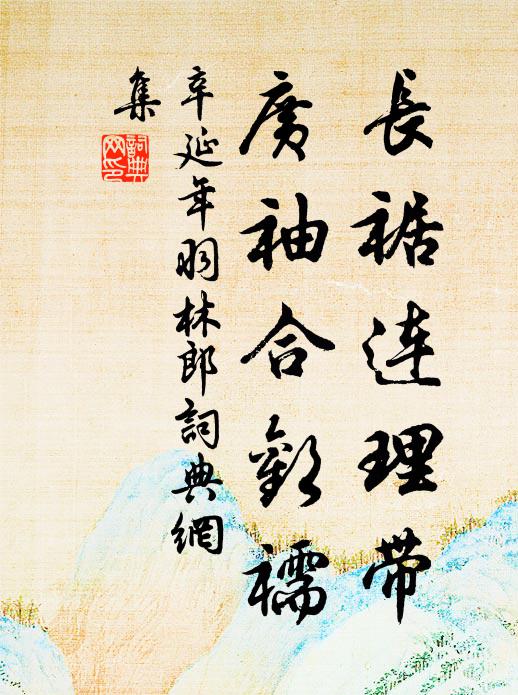 長裾連理帶
廣袖合歡襦
辛延年羽林郎詞典網
集
詞典
網印